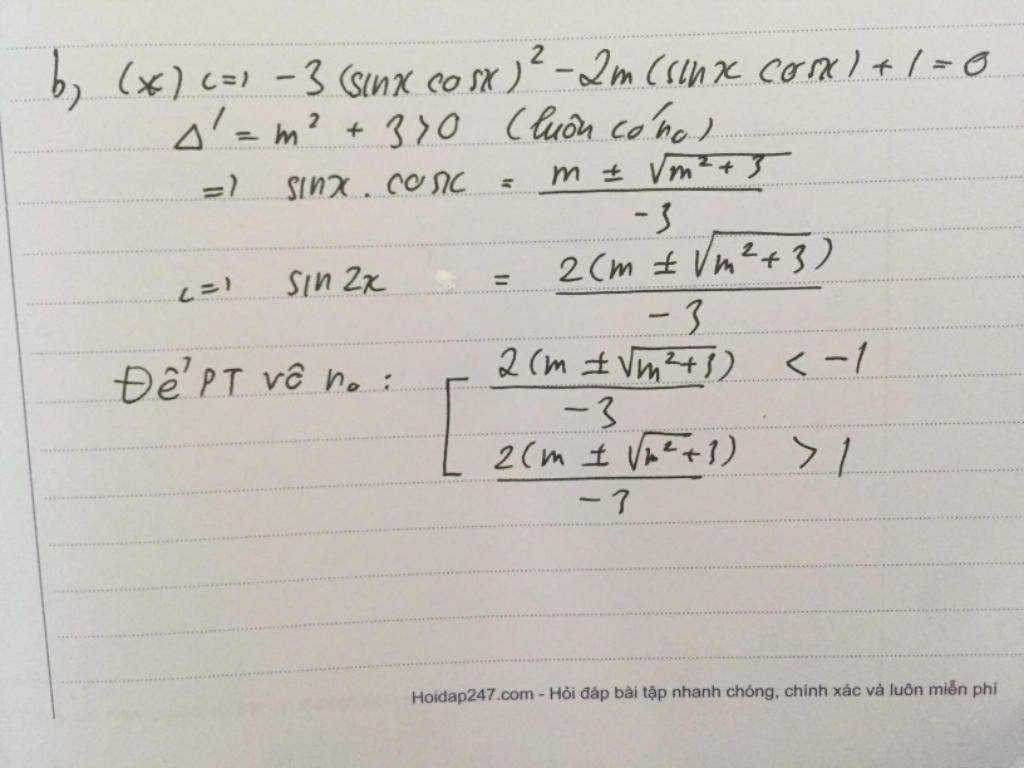 b, (*) <=> -3 (sinx cosx)² - 2m (sinx cosx) + 1 = 0
Δ' = m² + 3 > 0 (luôn có n₀)
=> sinx . cosx = (m ± √(m² + 3)) / -3
<=> sin 2x = 2(m ± √(m² + 3)) / -3
Để PT vô n₀ : [ 2(m ± √(m²+3)) / -3 < -1
2(m ± √(m²+3)) / -3 > 1
Hoidap247.com - Hỏi đáp bài tập nhanh chóng, chính xác và luôn miễn phí